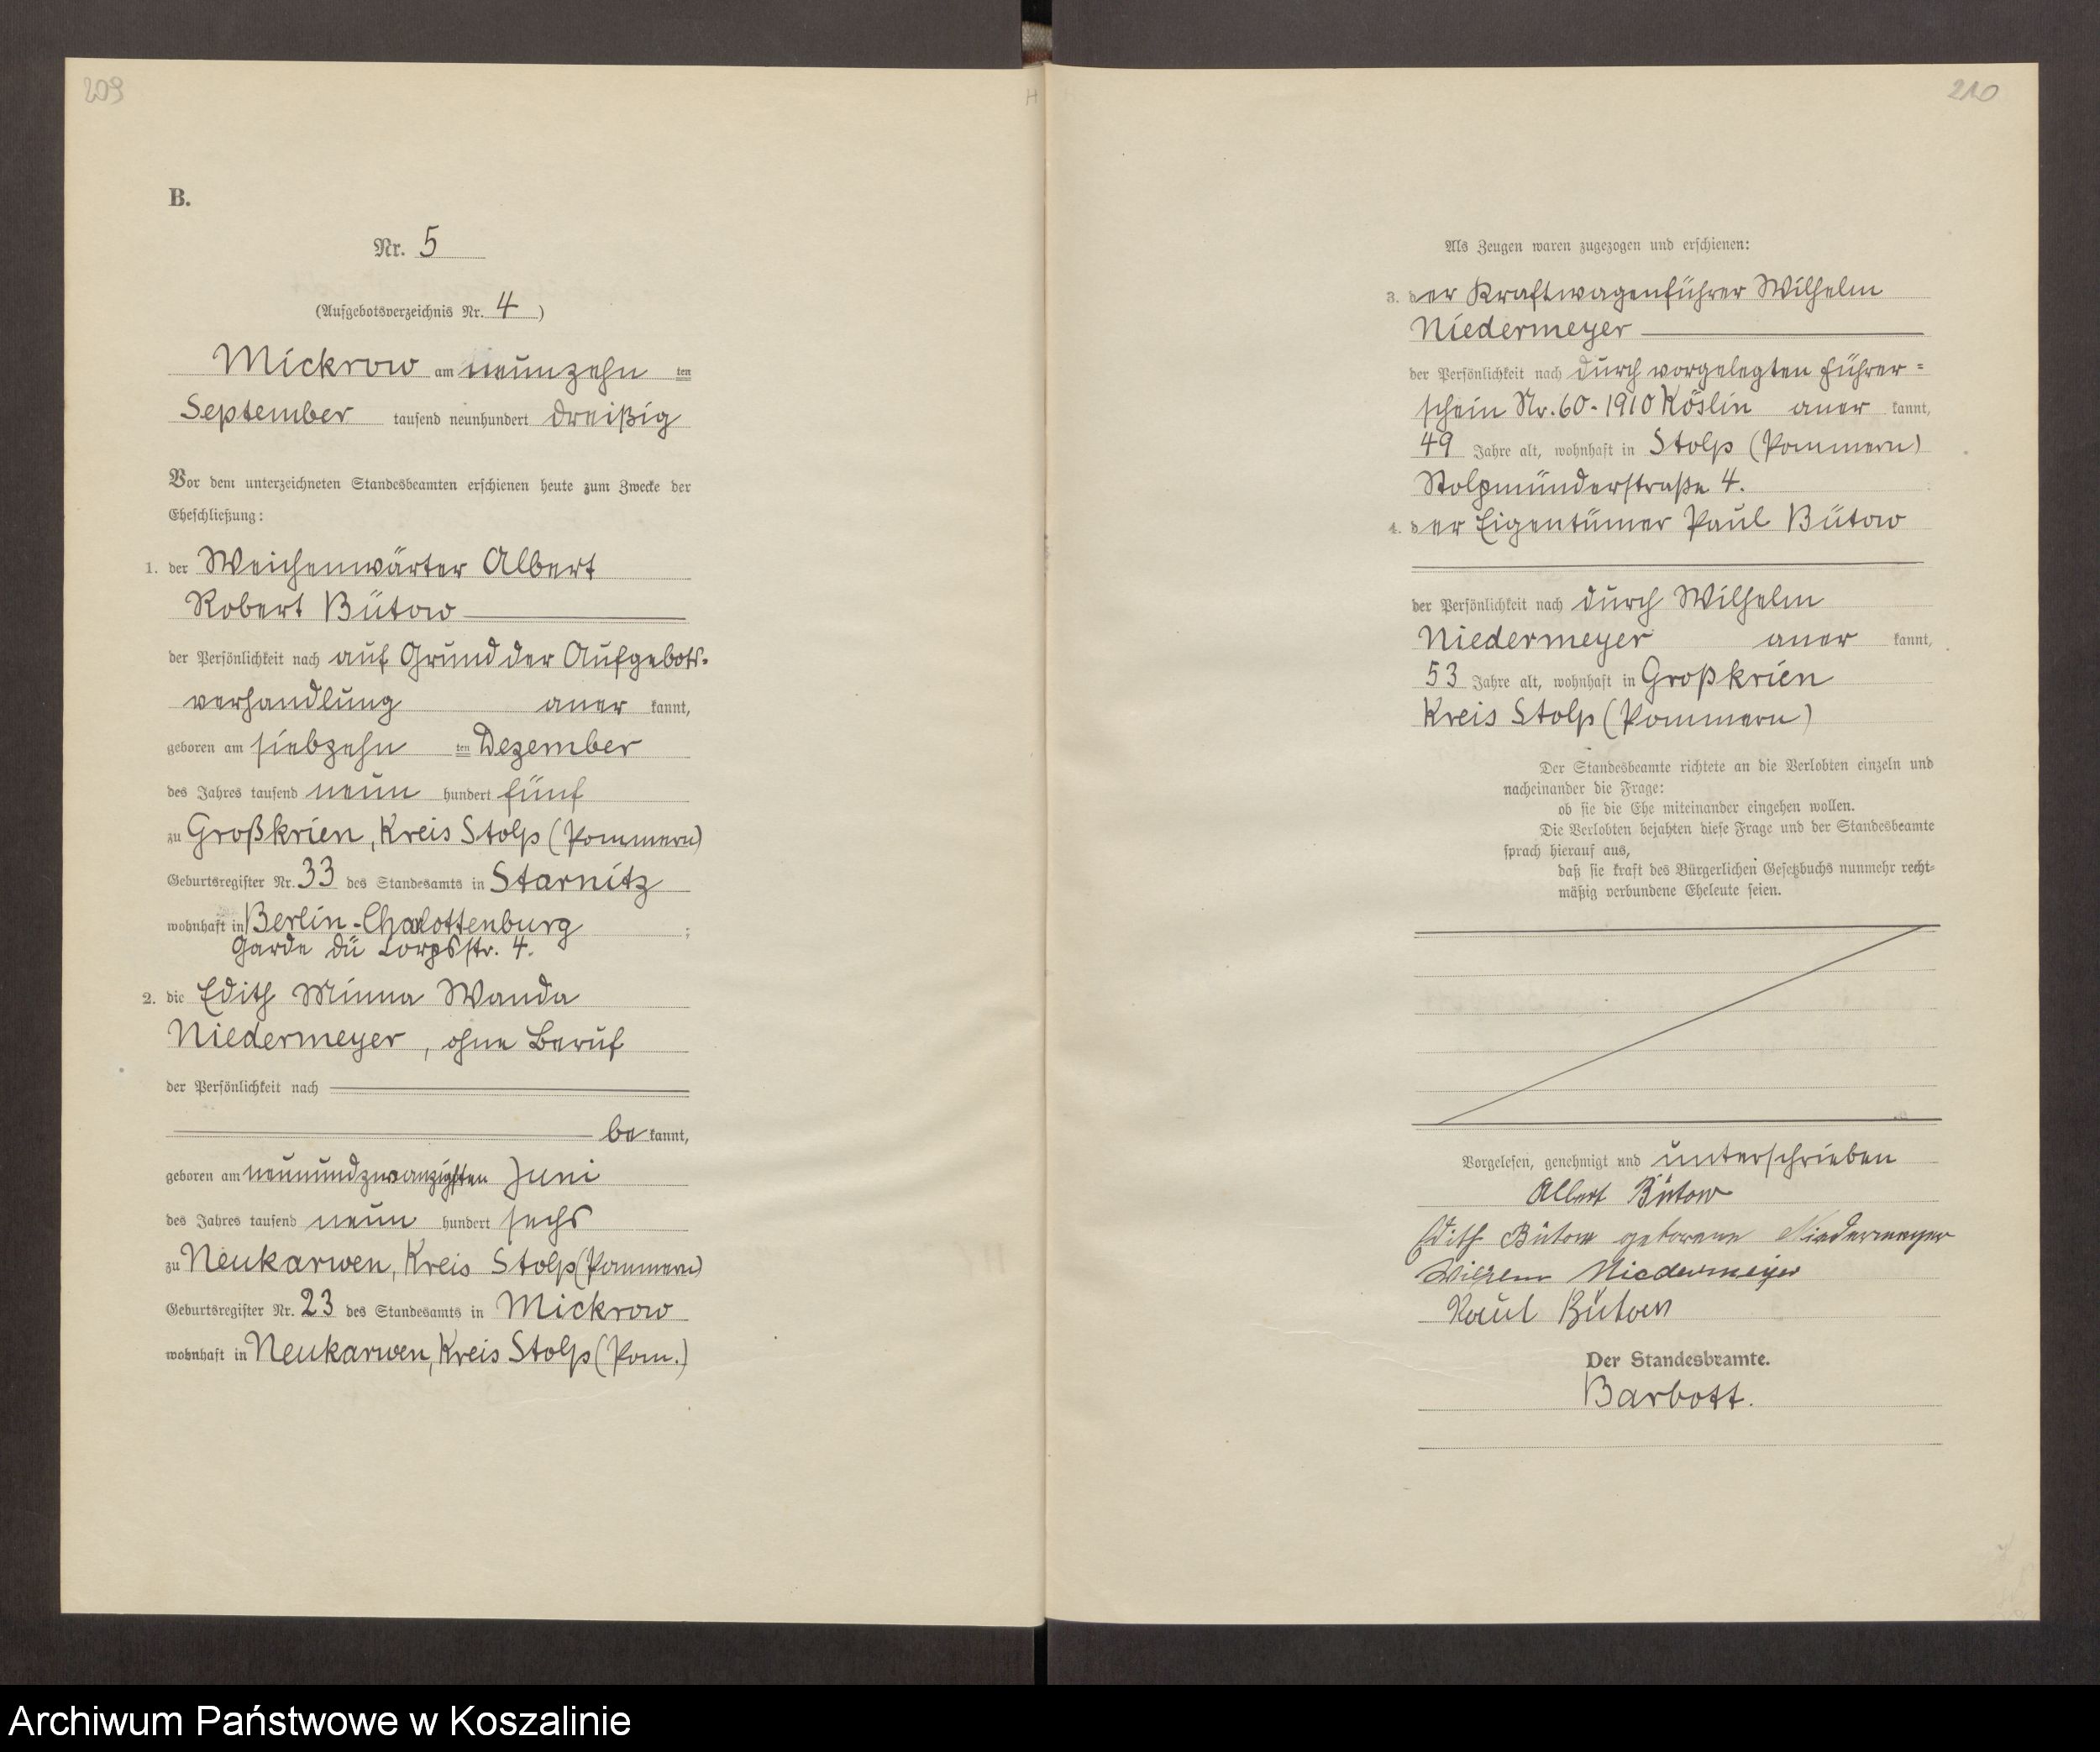 209
B.
Nr. 5
(Aufgebotsverzeichnis Nr. 4)
Mickrow am neunzehn ten
September tausend neunhundert dreißig
Vor dem unterzeichneten Standesbeamten erschienen heute zum Zwecke der
Eheschließung:
1. der Weichenwärter Albert
Robert Bütow
der Persönlichkeit nach auf Grund der Aufgebots-
verhandlung aner kannt,
geboren am siebzehn ten Dezember
des Jahres tausend neun hundert fünf
zu Großkrien, Kreis Stolp (Pommern)
Geburtsregister Nr. 33 des Standesamts in Starnitz
wohnhaft in Berlin-Chalottenburg ;
Garde dü Corpsstr. 4.
2. die Edith Minna Wanda
Niedermeyer, ohne Beruf
der Persönlichkeit nach
be kannt,
geboren am neunundzwanzigsten Juni
des Jahres tausend neun hundert sechs
zu Neukarwen, Kreis Stolp (Pommern)
Geburtsregister Nr. 23 des Standesamts in Mickrow
wohnhaft in Neukarwen, Kreis Stolp (Pom.)
210
Als Zeugen waren zugezogen und erschienen:
3. der Kraftwagenführer Wilhelm
Niedermeyer
der Persönlichkeit nach durch vorgelegten Führer=
schein Nr. 60-1910 Köslin aner kannt,
49 Jahre alt, wohnhaft in Stolp (Pommern)
Stolpmünderstraße 4.
4. der Eigentümer Paul Bütow
der Persönlichkeit nach durch Wilhelm
Niedermeyer aner kannt,
53 Jahre alt, wohnhaft in Großkrien
Kreis Stolp (Pommern)
Der Standesbeamte richtete an die Verlobten einzeln und
nacheinander die Frage:
ob sie die Ehe miteinander eingehen wollen.
Die Verlobten bejahten diese Frage und der Standesbeamte
sprach hierauf aus,
daß sie kraft des Bürgerlichen Gesetzbuchs nunmehr recht=
mäßig verbundene Eheleute seien.
Vorgelesen, genehmigt und unterschrieben
Albert Bütow
Edith Bütow geborene Niedermeyer
Wilhelm Niedermeyer
Paul Bütow
Der Standesbeamte.
Barbott.
Archiwum Państwowe w Koszalinie